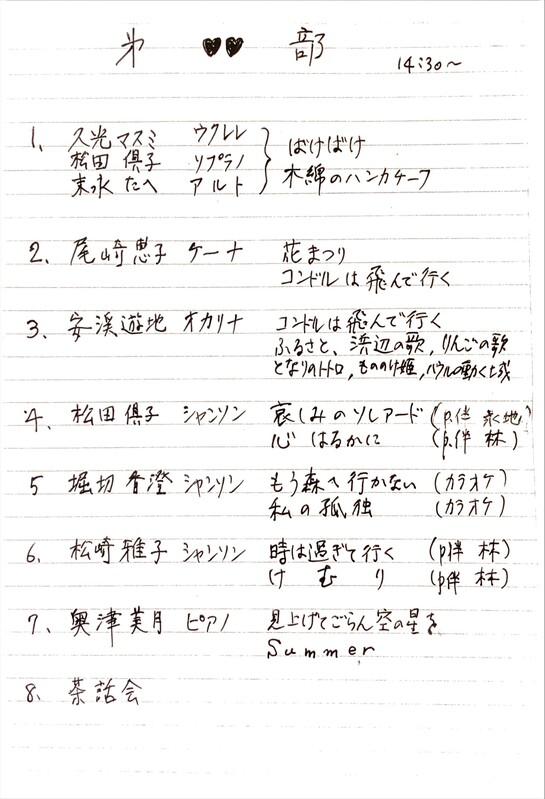 第 ♥♥ 部 14:30～
1、久光マスミ ウクレレ ばけばけ
松田倶子 ソプラノ 木綿のハンカチーフ
末永たへ アルト
2、尾崎恵子 ケーナ 花まつり
コンドルは飛んで行く
3、安渓遊地 オカリナ コンドルは飛んで行く
ふるさと、浜辺の歌、りんごの歌
となりのトトロ、もののけ姫、ハウルの動く城
4、松田倶子 シャンソン 哀しみのソレアード (p.伴 永地)
心はるかに (p.伴 林)
5 堀切香澄 シャンソン もう森へ行かない (カラオケ)
私の孤独 (カラオケ)
6、松崎雅子 シャンソン 時は過ぎて行く (p伴 林)
けむり (p伴 林)
7、奥津美月 ピアノ 見上げてごらん空の星を
Summer
8、茶話会